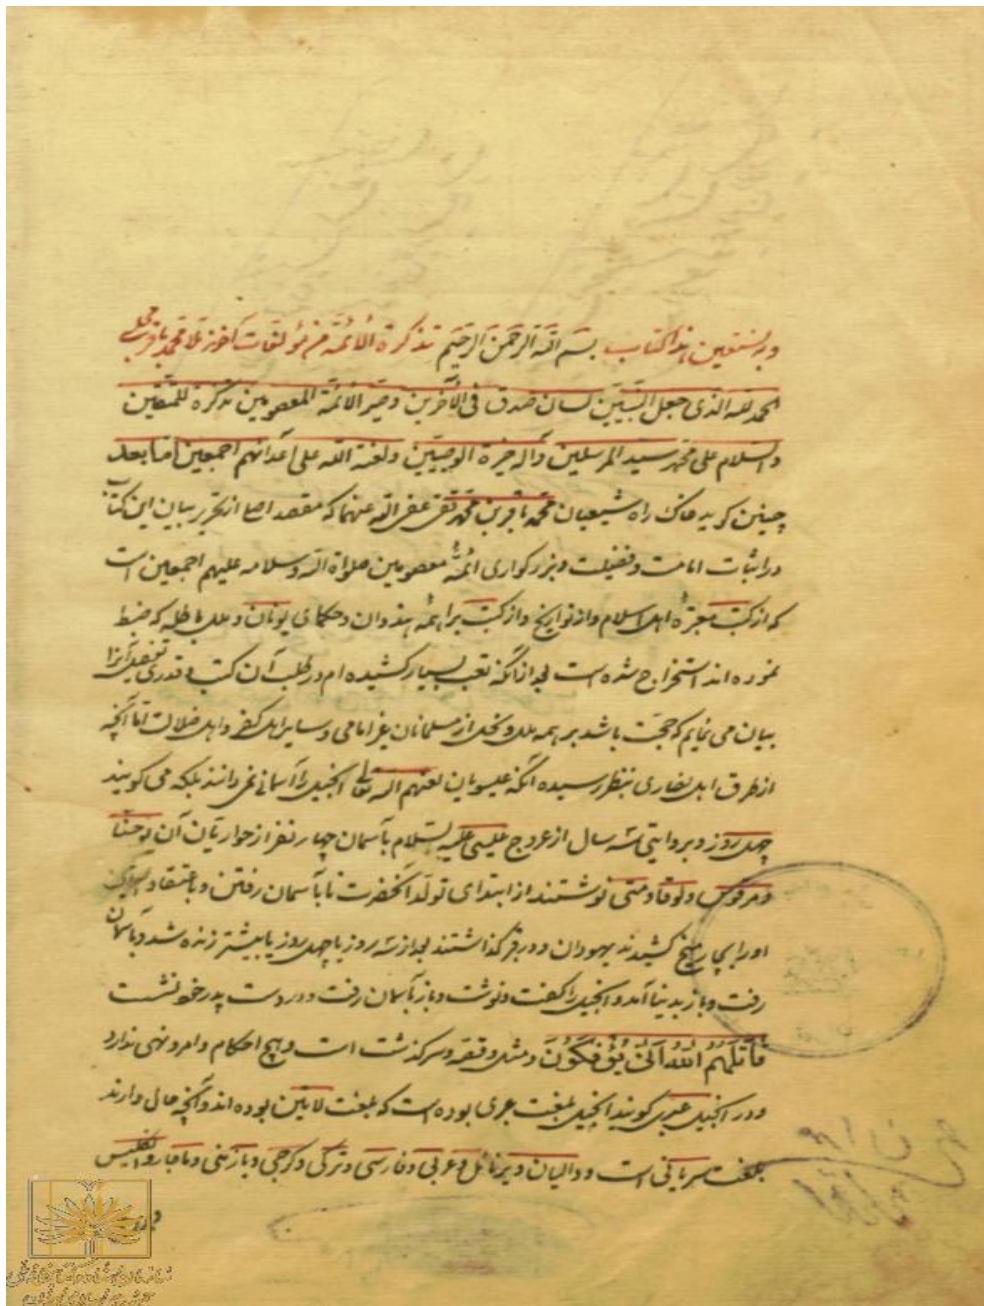 وبه نستعین هذا کتاب بسم الله الرحمن الرحیم تذکرة الائمة من مؤلفات آخوند ملا محمد باقر مجلسی
الحمد لله الذی جعل النبیین لسان صدق فی الآخرین وصیر الائمة المعصومین تذکرة للمتقین
والسلام علی محمد سید المرسلین وآله خیرة الوصیین ولعنة الله علی اعدائهم اجمعین اما بعد
چنین کوید خاک راه شیعیان محمد باقر بن محمد تقی عفی الله عنهما که مقصد اصلی از تحریر بیان این کتاب
در اثبات امامت وفضیلت وبزرکواری ائمه معصومین صلواة الله وسلامه علیهم اجمعین است
که از کتب معتبرهٔ اهل اسلام واز تواریخ واز کتب براهمه هندوان وحکمای یونان وملل باطله که ضبط
نموده اند استخراج شده است بعد از آنکه تعب بسیار کشیده ام در طلب آن کتب وقدری تفصیل آنرا
بیان می نمایم که حجت باشد بر همه ملل ونحل از مسلمانان غیر امامی وسایر اهل کفر واهل ضلالت اما آنچه
از طرق اهل نصاری بنظر رسیده آنکه عیسویان لعنهم الله تعالی انجیل را آسمانی نمی دانند بلکه می کویند
چهل روز وبروایتی سه سال از عروج عیسی علیه السلام بآسمان چهار نفر از حواریان آن یوحنا
ومرقوس ولوقا ومتی نوشتند از ابتدای تولد آنحضرت تا بآسمان رفتن وباعتقاد
او را بچار میخ کشیدند یهودان ودر قبر کذاشتند بعد از سه روز یا چهل روز یا بیشتر زنده شد وبآسمان
رفت وباز بدنیا آمد وانجیل را کفت ونوشت وباز بآسمان رفت ودر دست پدر خود نشست
قَاتَلَهُمُ اللهُ اَنّیٰ یُؤْفَکُونَ ومثل وقصه وسرکذشت است وهیچ احکام وامر ونهی ندارد
ودر انجیل عبری کویند انجیل بلغت عبری بوده است که بلغت لاتین بوده اند وآنچه حال دارند
بلغت سریانی است ودالیان وعربی وفارسی وترکی وکرجی وبارمنی وماجار وانکلیس